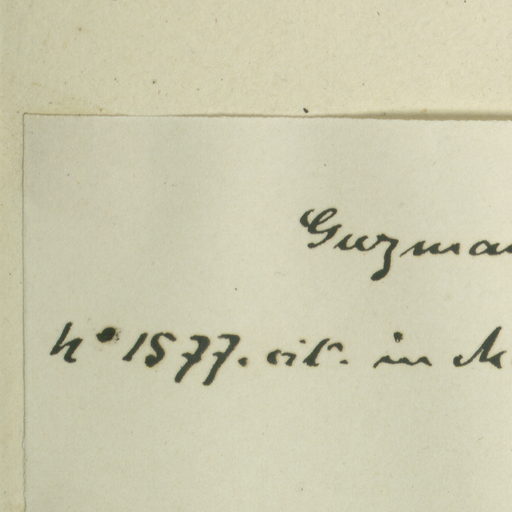 Guzma
No 1577. cit. in M